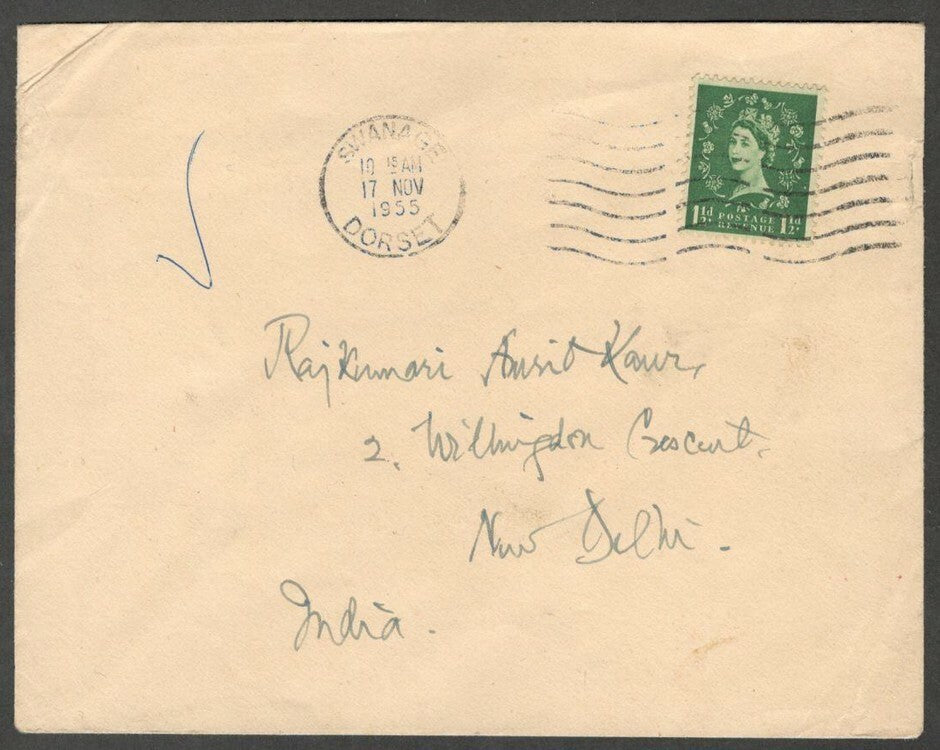 SWANAGE
10 15 AM
17 NOV
1955
DORSET
1½d POSTAGE REVENUE 1½d
Rajkumari Amrit Kaur,
2. Willingdon Crescent,
New Delhi.
India.